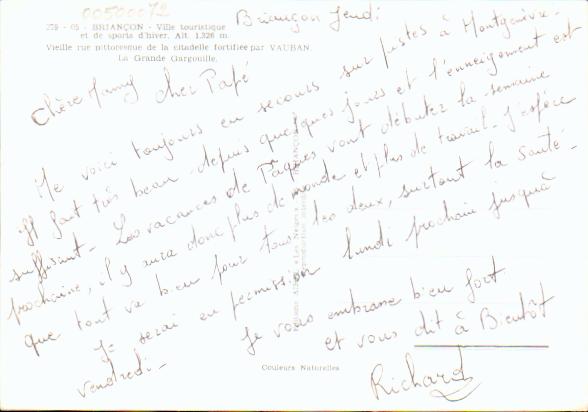 00500072
279 - 05 - BRIANÇON - Ville touristique
et de sports d'hiver. Alt. 1.326 m.
Vieille rue pittoresque de la citadelle fortifiée par VAUBAN.
La Grande Gargouille.
Briançon Jeudi
Chère Mamy Cher Papé
Me voici toujours en secours sur pistes à Montgenèvre.
Il fait très beau depuis quelques jours et l'enneigement est
suffisant. Les vacances de Pâques vont débuter la semaine
prochaine, il y aura donc plus de monde et plus de travail. J'espère
que tout va bien pour tous les deux, surtout la santé.
Je serai en permission lundi prochain jusqu'à
vendredi.
Je vous embrasse bien fort
et vous dit à Bientôt
Richard
Couleurs Naturelles